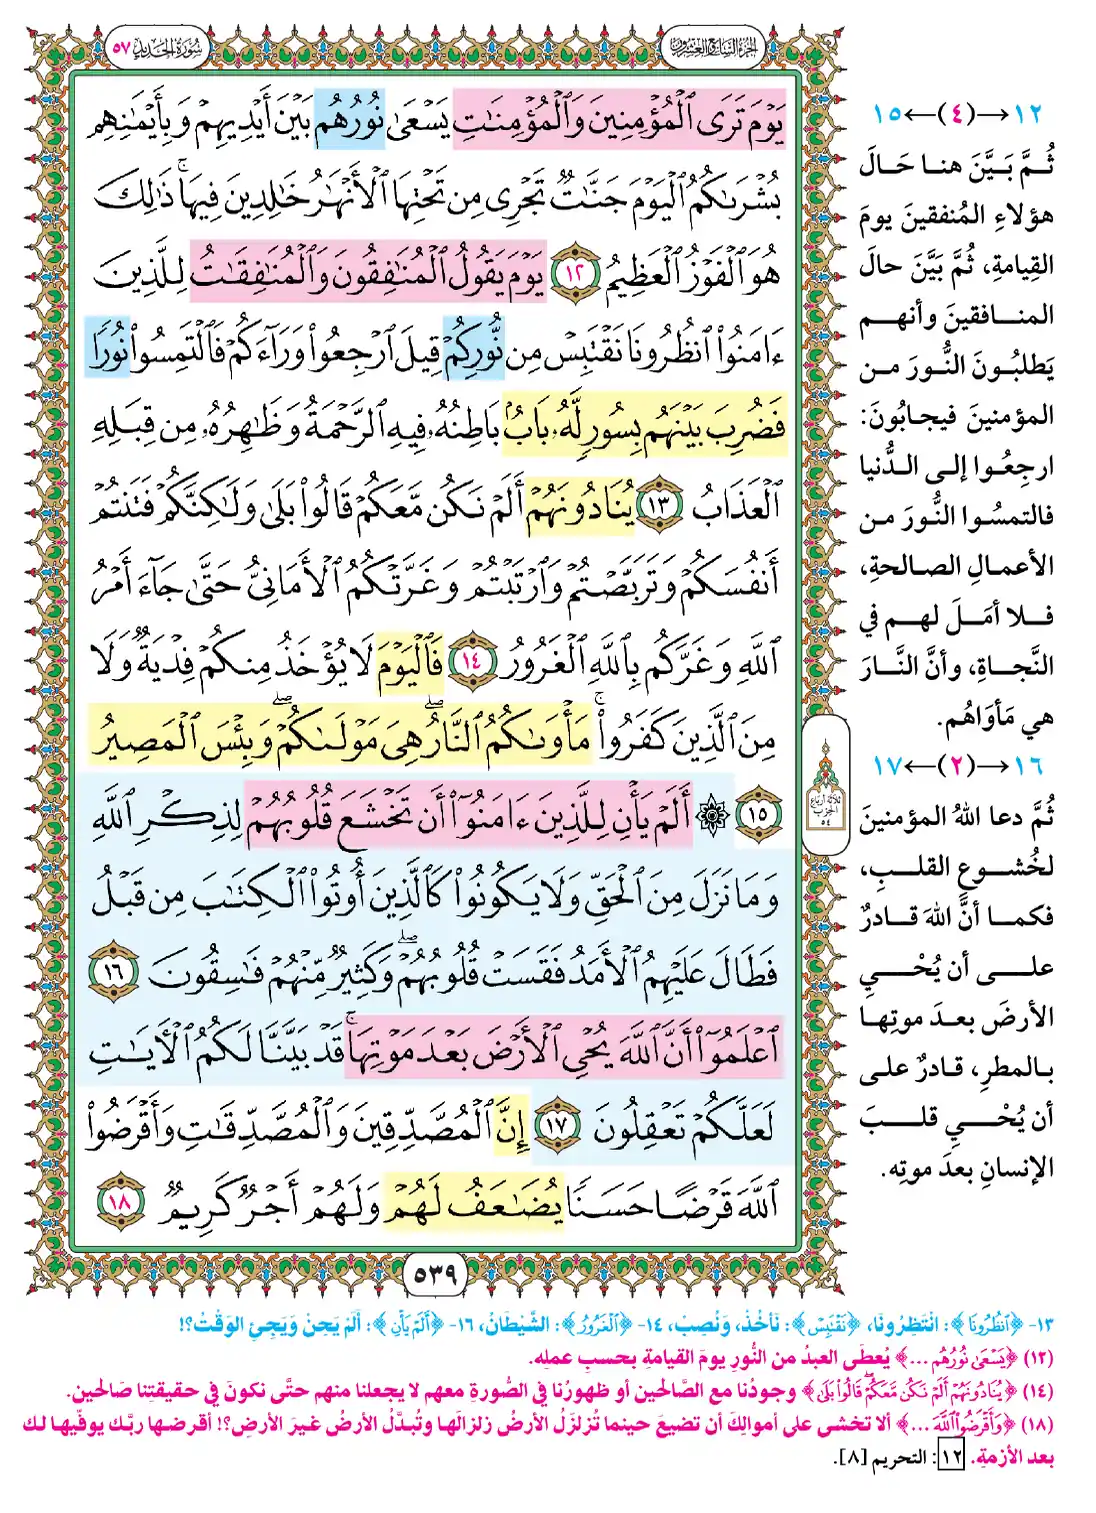 الجزء السابع والعشرون
سورة الحديد ٥٧
يَوْمَ تَرَى ٱلْمُؤْمِنِينَ وَٱلْمُؤْمِنَٰتِ يَسْعَىٰ نُورُهُم بَيْنَ أَيْدِيهِمْ وَبِأَيْمَٰنِهِم
بُشْرَىٰكُمُ ٱلْيَوْمَ جَنَّٰتٌ تَجْرِى مِن تَحْتِهَا ٱلْأَنْهَٰرُ خَٰلِدِينَ فِيهَا ۚ ذَٰلِكَ
هُوَ ٱلْفَوْزُ ٱلْعَظِيمُ ١٢ يَوْمَ يَقُولُ ٱلْمُنَٰفِقُونَ وَٱلْمُنَٰفِقَٰتُ لِلَّذِينَ
ءَامَنُوا۟ ٱنظُرُونَا نَقْتَبِسْ مِن نُّورِكُمْ قِيلَ ٱرْجِعُوا۟ وَرَآءَكُمْ فَٱلْتَمِسُوا۟ نُورًا
فَضُرِبَ بَيْنَهُم بِسُورٍ لَّهُۥ بَابٌۢ بَاطِنُهُۥ فِيهِ ٱلرَّحْمَةُ وَظَٰهِرُهُۥ مِن قِبَلِهِ
ٱلْعَذَابُ ١٣ يُنَادُونَهُمْ أَلَمْ نَكُن مَّعَكُمْ قَالُوا۟ بَلَىٰ وَلَٰكِنَّكُمْ فَتَنتُمْ
أَنفُسَكُمْ وَتَرَبَّصْتُمْ وَٱرْتَبْتُمْ وَغَرَّتْكُمُ ٱلْأَمَانِىُّ حَتَّىٰ جَآءَ أَمْرُ
ٱللَّهِ وَغَرَّكُم بِٱللَّهِ ٱلْغَرُورُ ١٤ فَٱلْيَوْمَ لَا يُؤْخَذُ مِنكُمْ فِدْيَةٌ وَلَا
مِنَ ٱلَّذِينَ كَفَرُوا۟ ۚ مَأْوَىٰكُمُ ٱلنَّارُ ۖ هِىَ مَوْلَىٰكُمْ ۖ وَبِئْسَ ٱلْمَصِيرُ
١٥ ۞ أَلَمْ يَأْنِ لِلَّذِينَ ءَامَنُوٓا۟ أَن تَخْشَعَ قُلُوبُهُمْ لِذِكْرِ ٱللَّهِ
وَمَا نَزَلَ مِنَ ٱلْحَقِّ وَلَا يَكُونُوا۟ كَٱلَّذِينَ أُوتُوا۟ ٱلْكِتَٰبَ مِن قَبْلُ
فَطَالَ عَلَيْهِمُ ٱلْأَمَدُ فَقَسَتْ قُلُوبُهُمْ ۖ وَكَثِيرٌ مِّنْهُمْ فَٰسِقُونَ ١٦
ٱعْلَمُوٓا۟ أَنَّ ٱللَّهَ يُحْىِ ٱلْأَرْضَ بَعْدَ مَوْتِهَا ۚ قَدْ بَيَّنَّا لَكُمُ ٱلْءَايَٰتِ
لَعَلَّكُمْ تَعْقِلُونَ ١٧ إِنَّ ٱلْمُصَّدِّقِينَ وَٱلْمُصَّدِّقَٰتِ وَأَقْرَضُوا۟
ٱللَّهَ قَرْضًا حَسَنًا يُضَٰعَفُ لَهُمْ وَلَهُمْ أَجْرٌ كَرِيمٌ ١٨
٥٣٩
١٢→(٤)←١٥
ثُمَّ بَيَّنَ هنا حَالَ
هؤلاءِ المُنفقينَ يومَ
القِيامةِ، ثُمَّ بَيَّنَ حالَ
المنافقينَ وأنهم
يَطلبُونَ النُّورَ من
المؤمنينَ فيجابُونَ:
ارجِعُوا إلى الدُّنيا
فالتمسُوا النُّورَ من
الأعمالِ الصالحةِ،
فلا أمَلَ لهم في
النَّجاةِ، وأنَّ النَّارَ
هي مَأوَاهُم.
١٦→(٢)←١٧
ثُمَّ دعا اللهُ المؤمنينَ
لخُشوعِ القلبِ،
فكما أنَّ اللهَ قادرٌ
على أن يُحْيي
الأرضَ بعدَ موتِها
بالمطرِ، قادرٌ على
أن يُحْيي قلبَ
الإنسانِ بعدَ موتِه.
ثلاثة أرباع
الحزب
٥٤
١٣- ﴿ٱنظُرُونَا﴾: انْتَظِرُونَا، ﴿نَقْتَبِسْ﴾: نَأخُذْ، وَنُصِبْ، ١٤- ﴿ٱلْغَرُورُ﴾: الشَّيْطَانُ، ١٦- ﴿أَلَمْ يَأْنِ﴾: أَلَمْ يَحِنْ وَيَجِئِ الوَقْتُ؟!
(١٢) ﴿يَسْعَىٰ نُورُهُم ...﴾ يُعطَى العبدُ من النُّورِ يومَ القيامةِ بحسبِ عملِه.
(١٤) ﴿يُنَادُونَهُمْ أَلَمْ نَكُن مَّعَكُمْ ۖ قَالُوا۟ بَلَىٰ﴾ وجودُنا مع الصَّالحين أو ظهورُنا في الصُّورةِ معهم لا يجعلنا منهم حتَّى نكونَ في حقيقتِنا صَالحين.
(١٨) ﴿وَأَقْرَضُوا۟ ٱللَّهَ ...﴾ ألا تخشى على أموالِكَ أن تضيعَ حينما تُزلزَلُ الأرضُ زلزالَها وتُبدَّلُ الأرضُ غيرَ الأرضِ؟! أقرضها ربَّك يوفّيها لك
بعد الأزمةِ. ١٢: التحريم [٨].